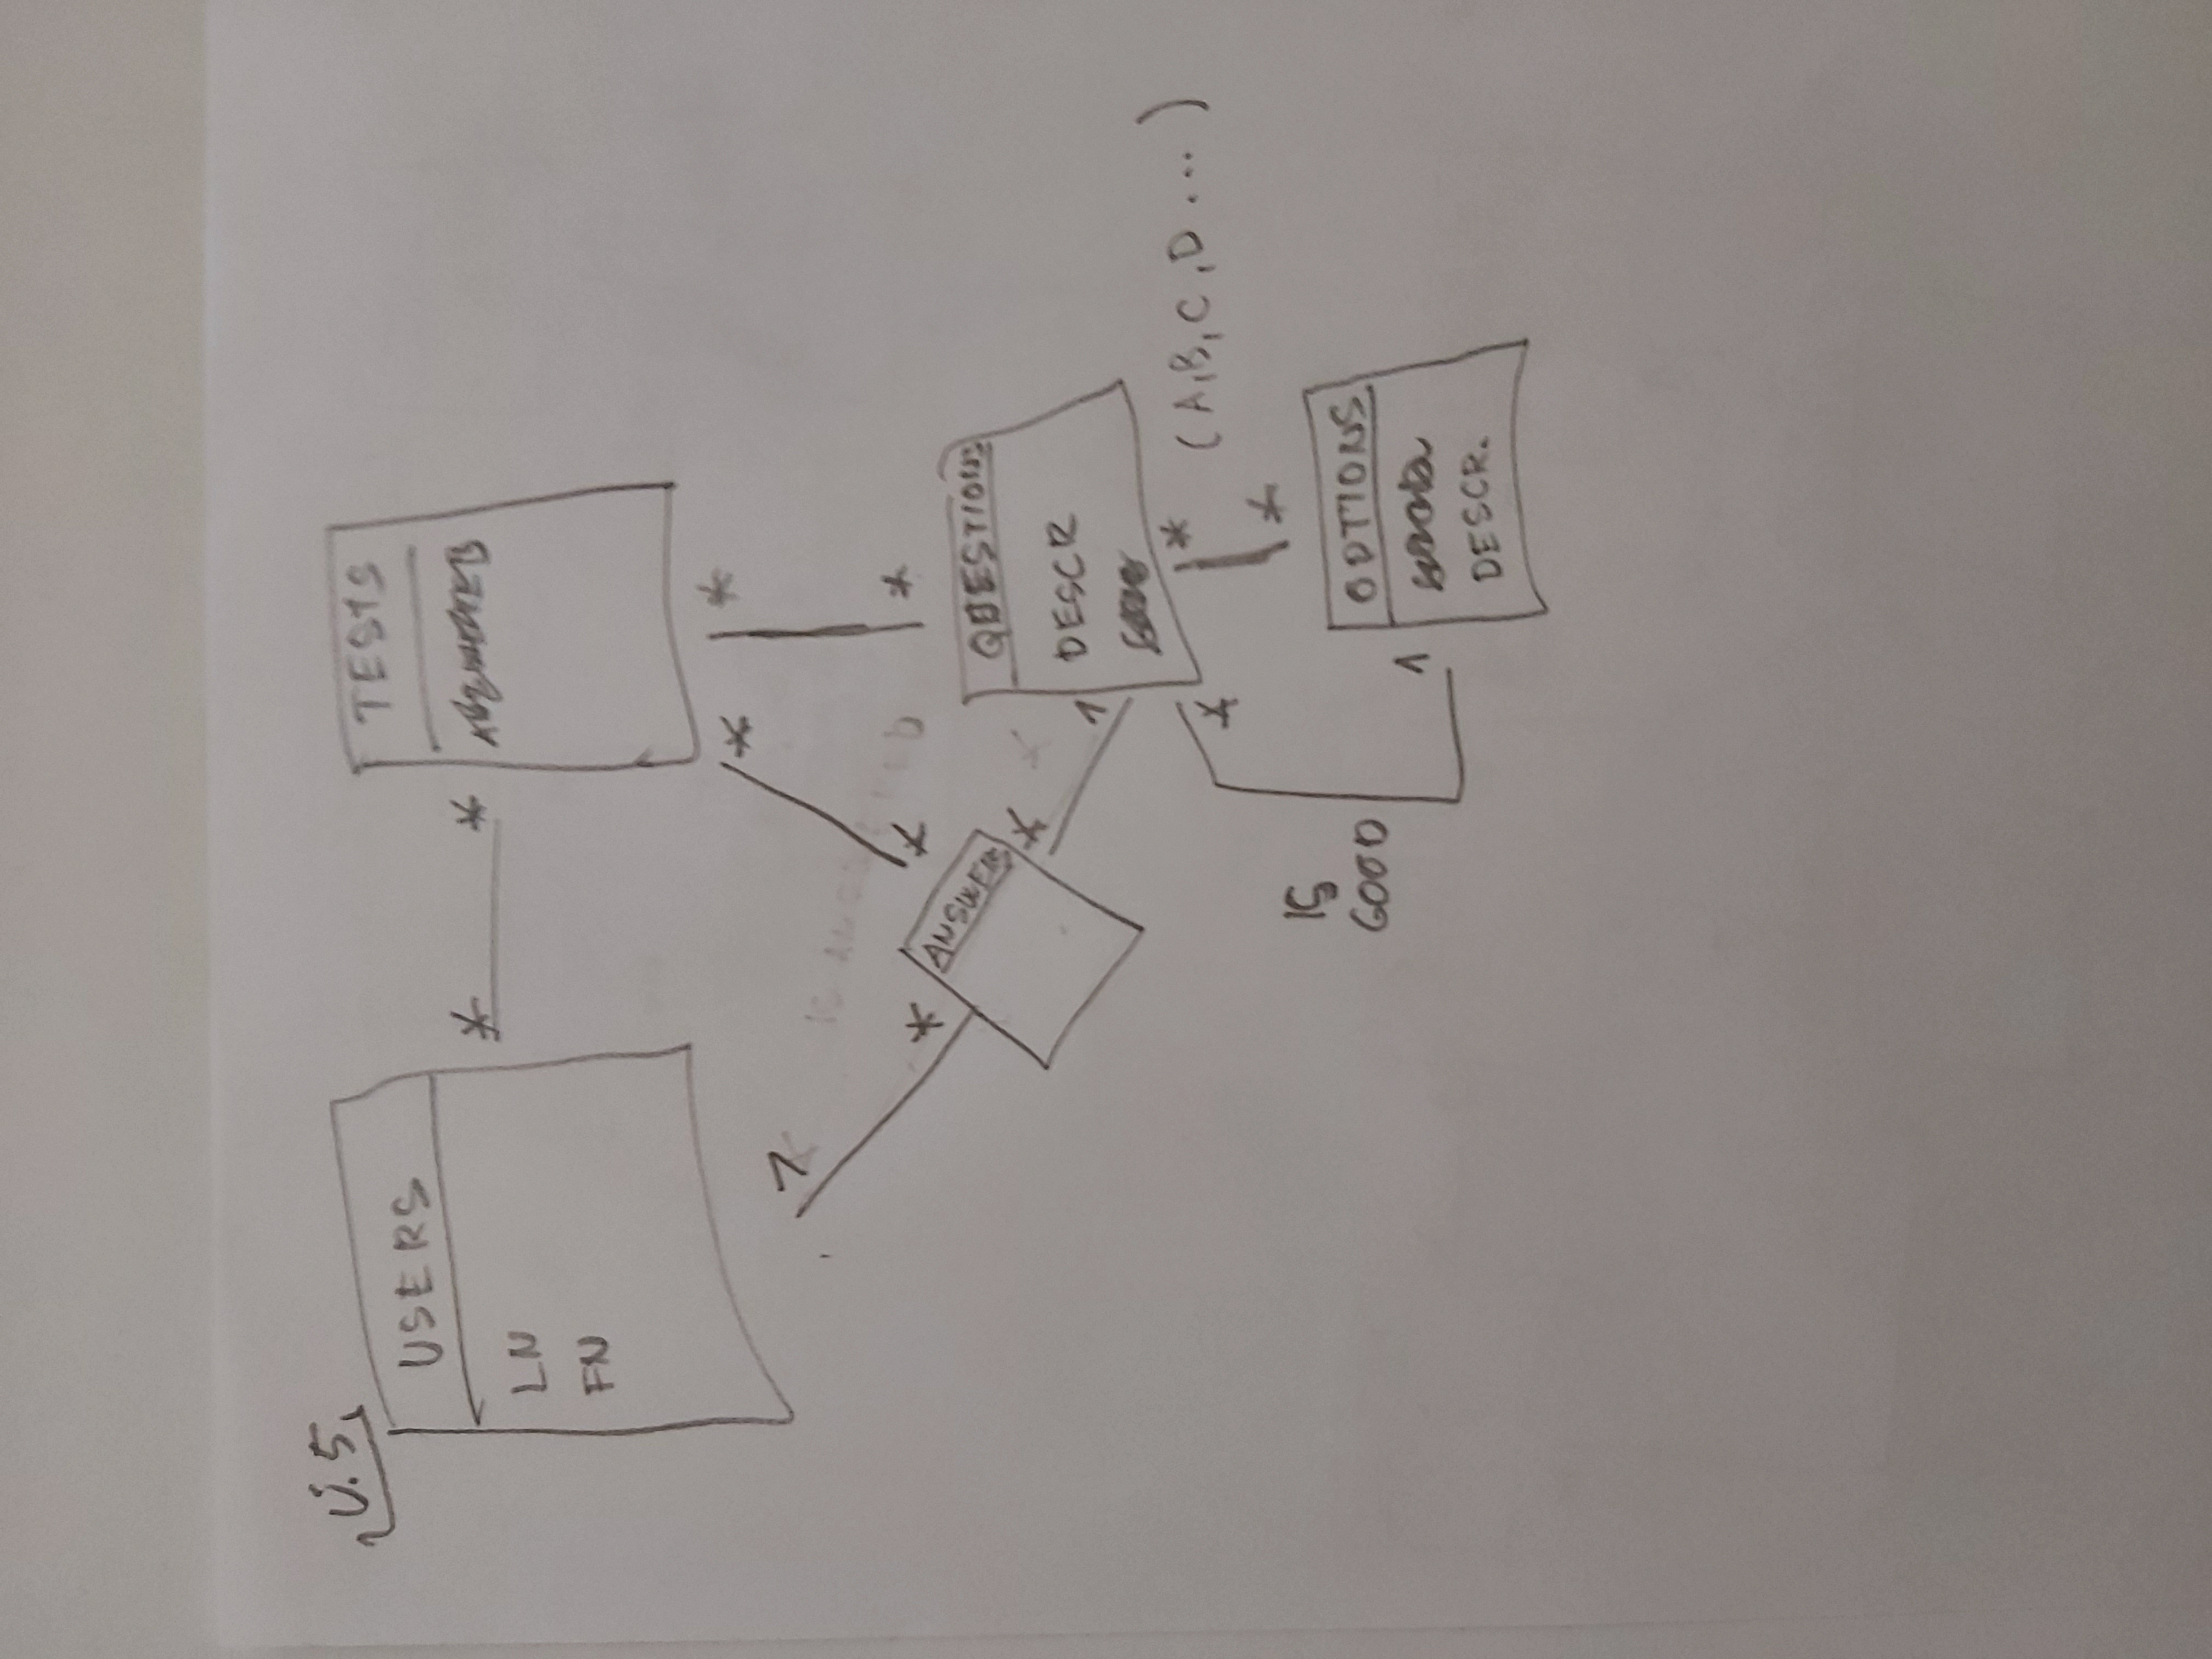 U.5
USERS
LN
FN
* *
TESTS
* *
1
* *
*
ANSWERS
* 1
QUESTIONS
DESCR
* *
(A,B,C,D...)
*
IS
GOOD
1
OPTIONS
DESCR.